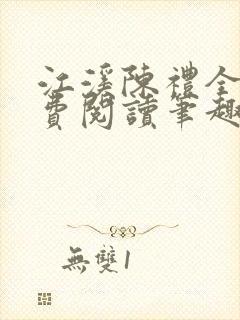 江溪陳禮全
費閱讀筆趣
無雙1